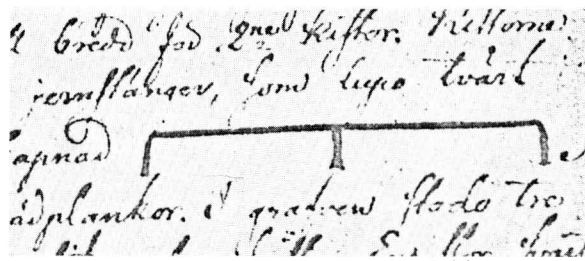 bredd för 2ne Kistor. Kistorna
jernstänger, som lupo tvärt
apnad
ädplankor. I grafven stodo tre